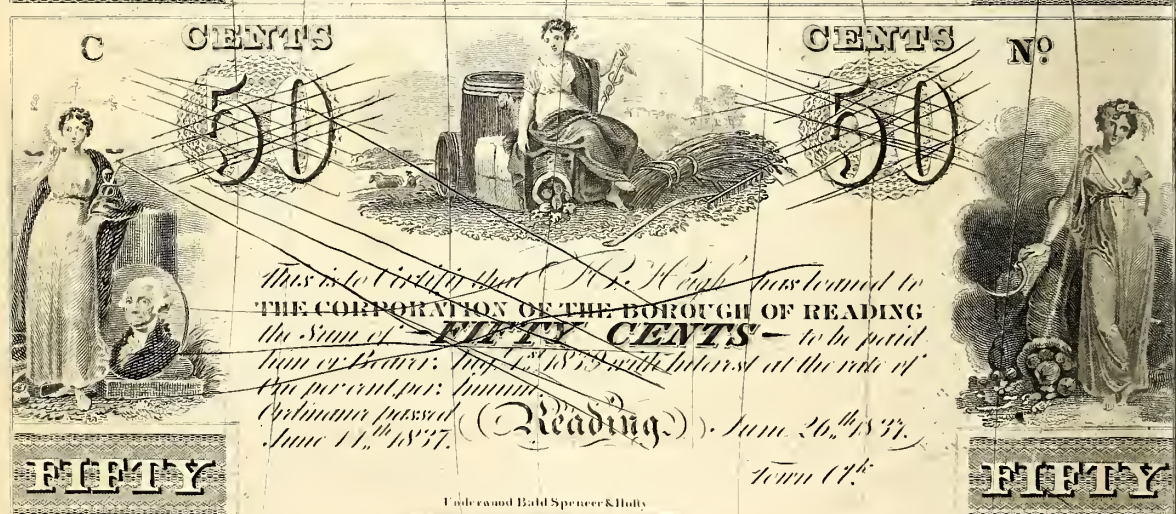 C CENTS CENTS Nº
50 50
This is to Certify that H. High has loaned to
THE CORPORATION OF THE BOROUGH OF READING
the Sum of — FIFTY CENTS — to be paid
him or Bearer: Augt. 1st. 1839 with Interest at the rate of
One per cent, per: Annum
Ordinance passed
June 14,th 1837. Reading. June 26,,th 1837.
Town Clk.
FIFTY FIFTY
Underwood Bald Spencer & Hufty